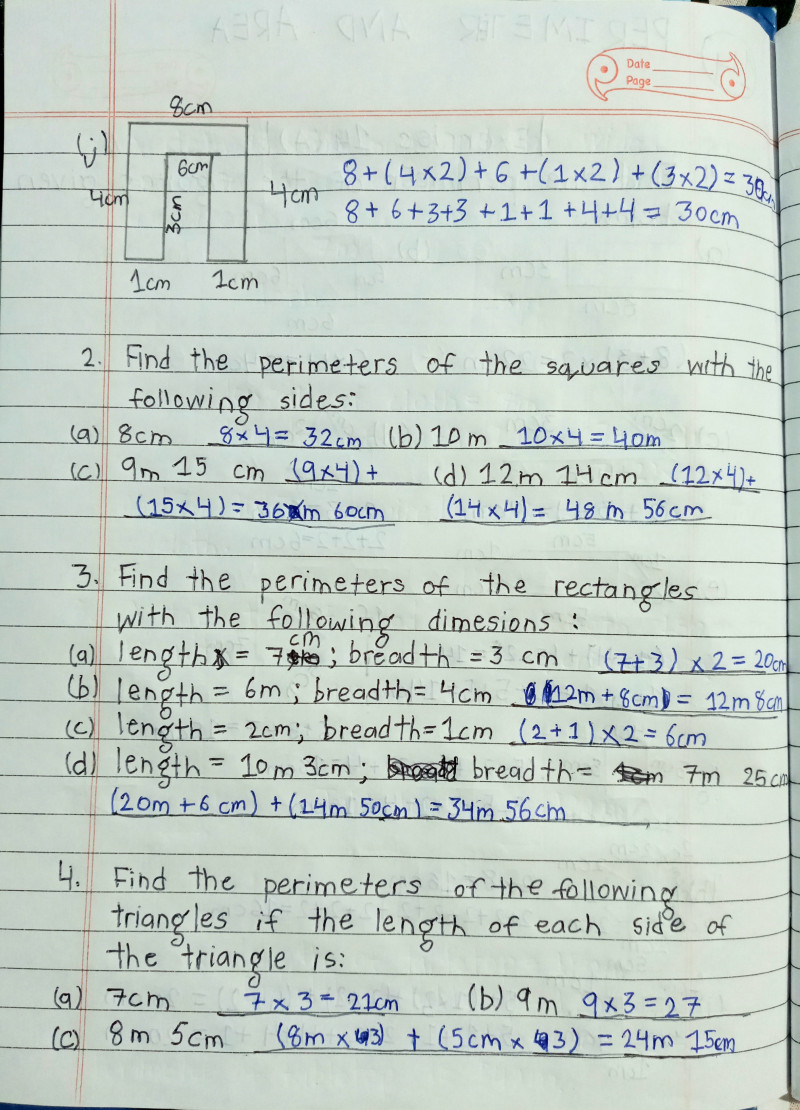 Date
Page
8cm
(j)
6cm
4cm
3cm
4cm
8+(4×2)+6+(1×2)+(3×2)=30cm
8+6+3+3+1+1+4+4=30cm
1cm 1cm
2. Find the perimeters of the squares with the
following sides:
(a) 8cm 8×4=32cm (b) 10m 10×4=40m
(c) 9m 15 cm (9×4)+ (d) 12m 14cm (12×4)+
(15×4)=36m 60cm (14×4)= 48m 56cm
3. Find the perimeters of the rectangles
with the following dimesions:
(a) length = 7cm; breadth = 3 cm (7+3)×2=20cm
(b) length = 6m; breadth=4cm (12m+8cm)=12m8cm
(c) length = 2cm; breadth=1cm (2+1)×2=6cm
(d) length = 10m 3cm, breadth= 7m 25cm
(20m+6cm)+(14m 50cm)=34m 56cm
4. Find the perimeters of the following
triangles if the length of each side of
the triangle is:
(a) 7cm 7×3=21cm (b) 9m 9×3=27
(c) 8m 5cm (8m×3)+(5cm×3)=24m 15cm